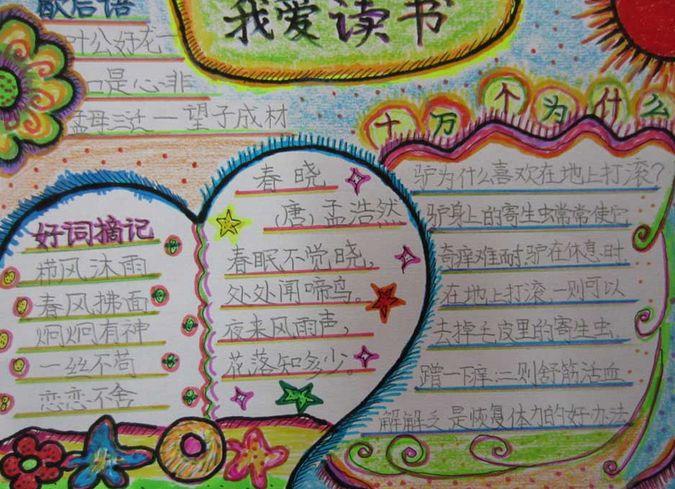 我爱读书
歇后语
叶公好龙一
口是心非
孟母三迁一望子成材
好词摘记
栉风沐雨
春风拂面
炯炯有神
一丝不苟
恋恋不舍
春晓
(唐)孟浩然
春眠不觉晓,
处处闻啼鸟。
夜来风雨声,
花落知多少。
十万个为什么
驴为什么喜欢在地上打滚?
驴身上的寄生虫常常使它
奇痒难耐,驴在休息时
在地上打滚,一则可以
去掉毛皮里的寄生虫,
蹭一下痒;二则舒筋活血
解解乏,是恢复体力的好办法